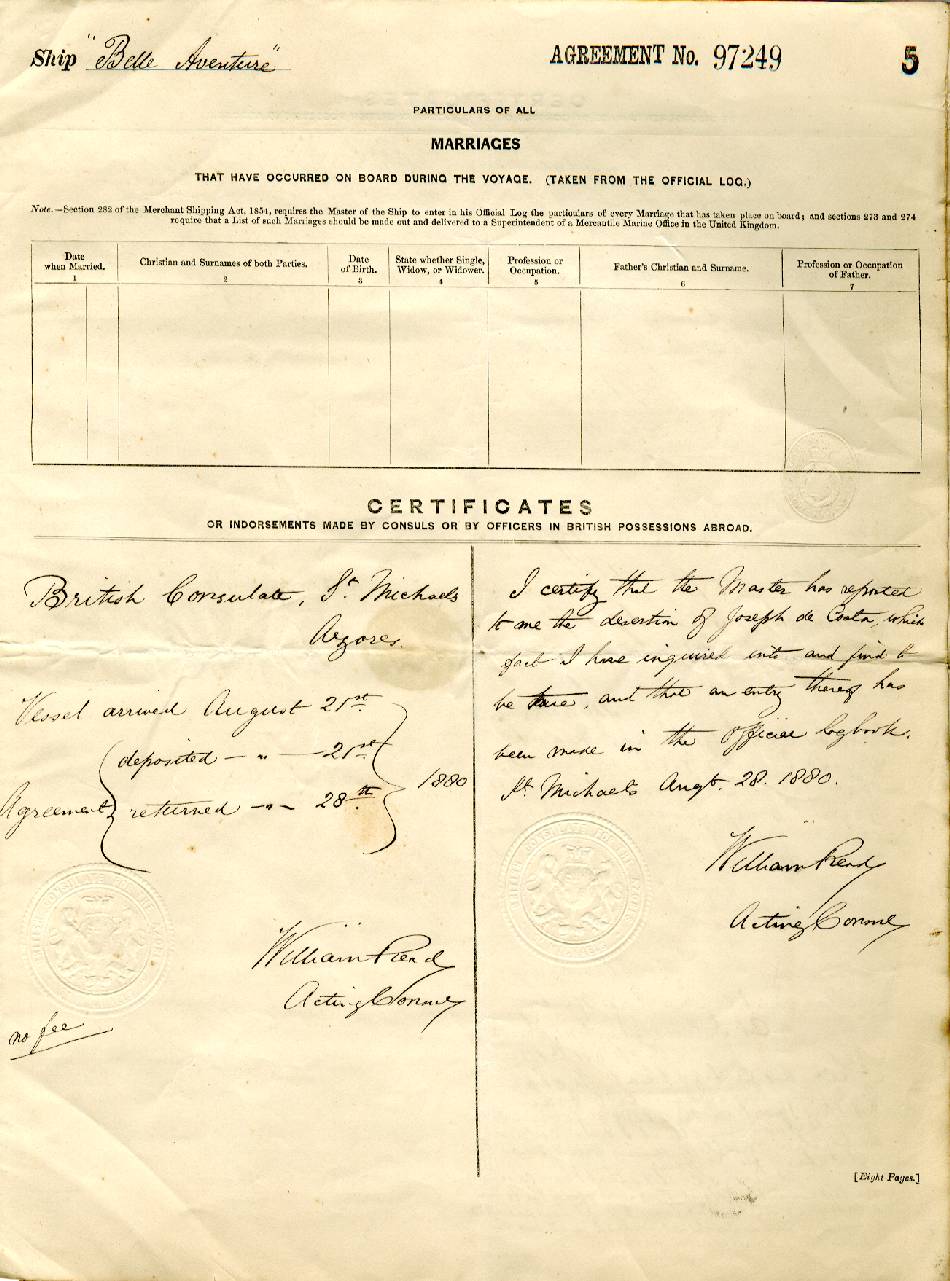 Ship "Belle Aventure"
AGREEMENT No. 97249
5
PARTICULARS OF ALL
MARRIAGES
THAT HAVE OCCURRED ON BOARD DURING THE VOYAGE. (TAKEN FROM THE OFFICIAL LOG.)
Note.—Section 282 of the Merchant Shipping Act, 1854, requires the Master of the Ship to enter in his Official Log the particulars of every Marriage that has taken place on board; and sections 273 and 274
require that a List of such Marriages should be made out and delivered to a Superintendent of a Mercantile Marine Office in the United Kingdom.
Date when Married. 1
Christian and Surnames of both Parties. 2
Date of Birth. 3
State whether Single, Widow, or Widower. 4
Profession or Occupation. 5
Father's Christian and Surname. 6
Profession or Occupation of Father. 7
CERTIFICATES
OR INDORSEMENTS MADE BY CONSULS OR BY OFFICERS IN BRITISH POSSESSIONS ABROAD.
British Consulate, St. Michaels
Azores.
Vessel arrived August 21st
deposited — " — 21st
1880
Agreement
returned — " — 28th
William Read
Acting Consul
no fee
I certify that the Master has reported
to me the desertion of Joseph de Costa, which
fact I have inquired into and find to
be true, and that an entry thereof has
been made in the Official logbook.
St. Michaels Augt. 28. 1880.
William Read
Acting Consul
[Eight Pages.]